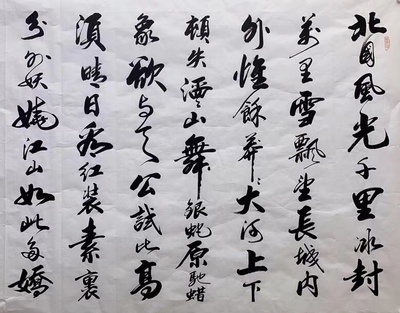 北國風光千里冰封
萬里雪飄望長城內
外惟餘莽〻大河上下
頓失滔〻山舞銀蛇原馳蜡
象欲与天公試比高
須晴日看紅裝素裹
分外妖嬈江山如此多嬌